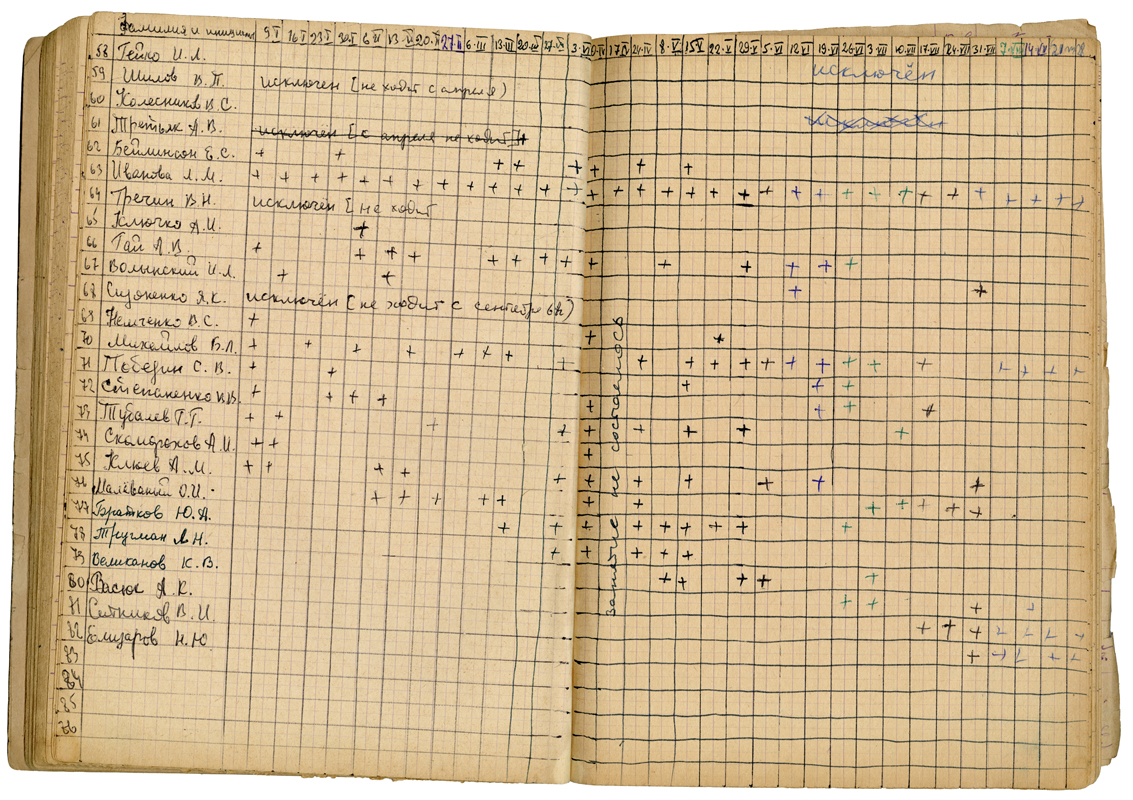 Фамилия и инициалы 9·I 16·I 23·I 30·I 6·II 13·II 20·II 27·II 6·III 13·III 20·III 27·III 3·IV 17·IV 24·IV 8·V 15·V 22·V 29·V 5·VI 12·VI 19·VI 26·VI 3·VII 10·VII 17·VII 24·VII 31·VII
58 Гейко И.Л. исключён
59 Шилов В.П. исключен [не ходит с апреля)
60 Колесников В.С.
61 Третьяк А.В. исключён [с апреля не ходит]
62 Бейлинсон Е.С. + + + + + + + +
63 Иванова Л.М. + + + + + + + + + + + + + + + + + + + + + + + + + + + + + + + +
64 Гречин В.Н. исключен [не ходит
65 Ключко А.И. +
66 Гай А.В. + + + + + + + + + + + + + +
67 Волынский И.Л. + + + +
68 Сизоненко Я.К. исключён (не ходит с сентября 62)
69 Немченко В.С. +
70 Михайлов Б.Л. + + + + + + +
71 Победин С.В. + +
72 Степаненко В.В. + + + +
73 Тубалев Г.Г. + +
74 Скоморохов А.И. + +
75 Клюев А.М. + + + +
76 Малеваний О.И. + + + + +
77 Братков Ю.А.
78 Тругман Л.Н.
79 Великанов К.В.
80 Васюк А.К.
81 Ситников В.И.
82 Елизаров Н.Ю.
83
84
85
86
Занятие не состоялось